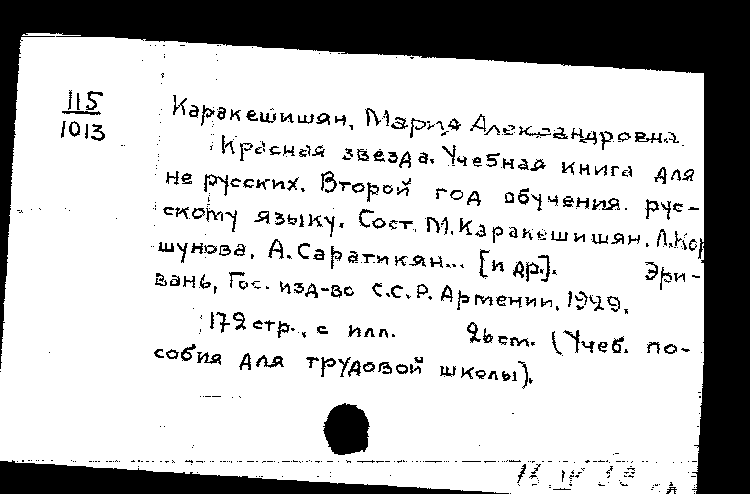 115
1013
Каракешишян, Мария Александровна.
Красная звезда. Учебная книга для
не русских. Второй год обучения рус-
скому языку. Сост. М. Каракешишян, Л. Кор
шунова, А. Саратикян... [и др.]. Эри-
вань, Гос. изд-во С.С.Р. Армении, 1929.
172 стр., с илл. (Учеб. по-
собия для трудовой школы).